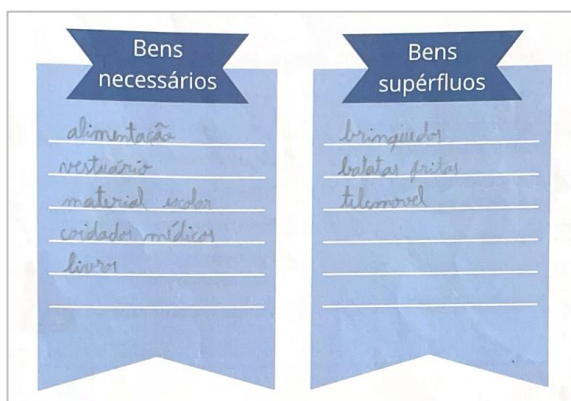 Bens
necessários
alimentação
vestuário
material escolar
coidados médicos
livros
Bens
supérfluos
brinquedos
batatas fritas
telemovel